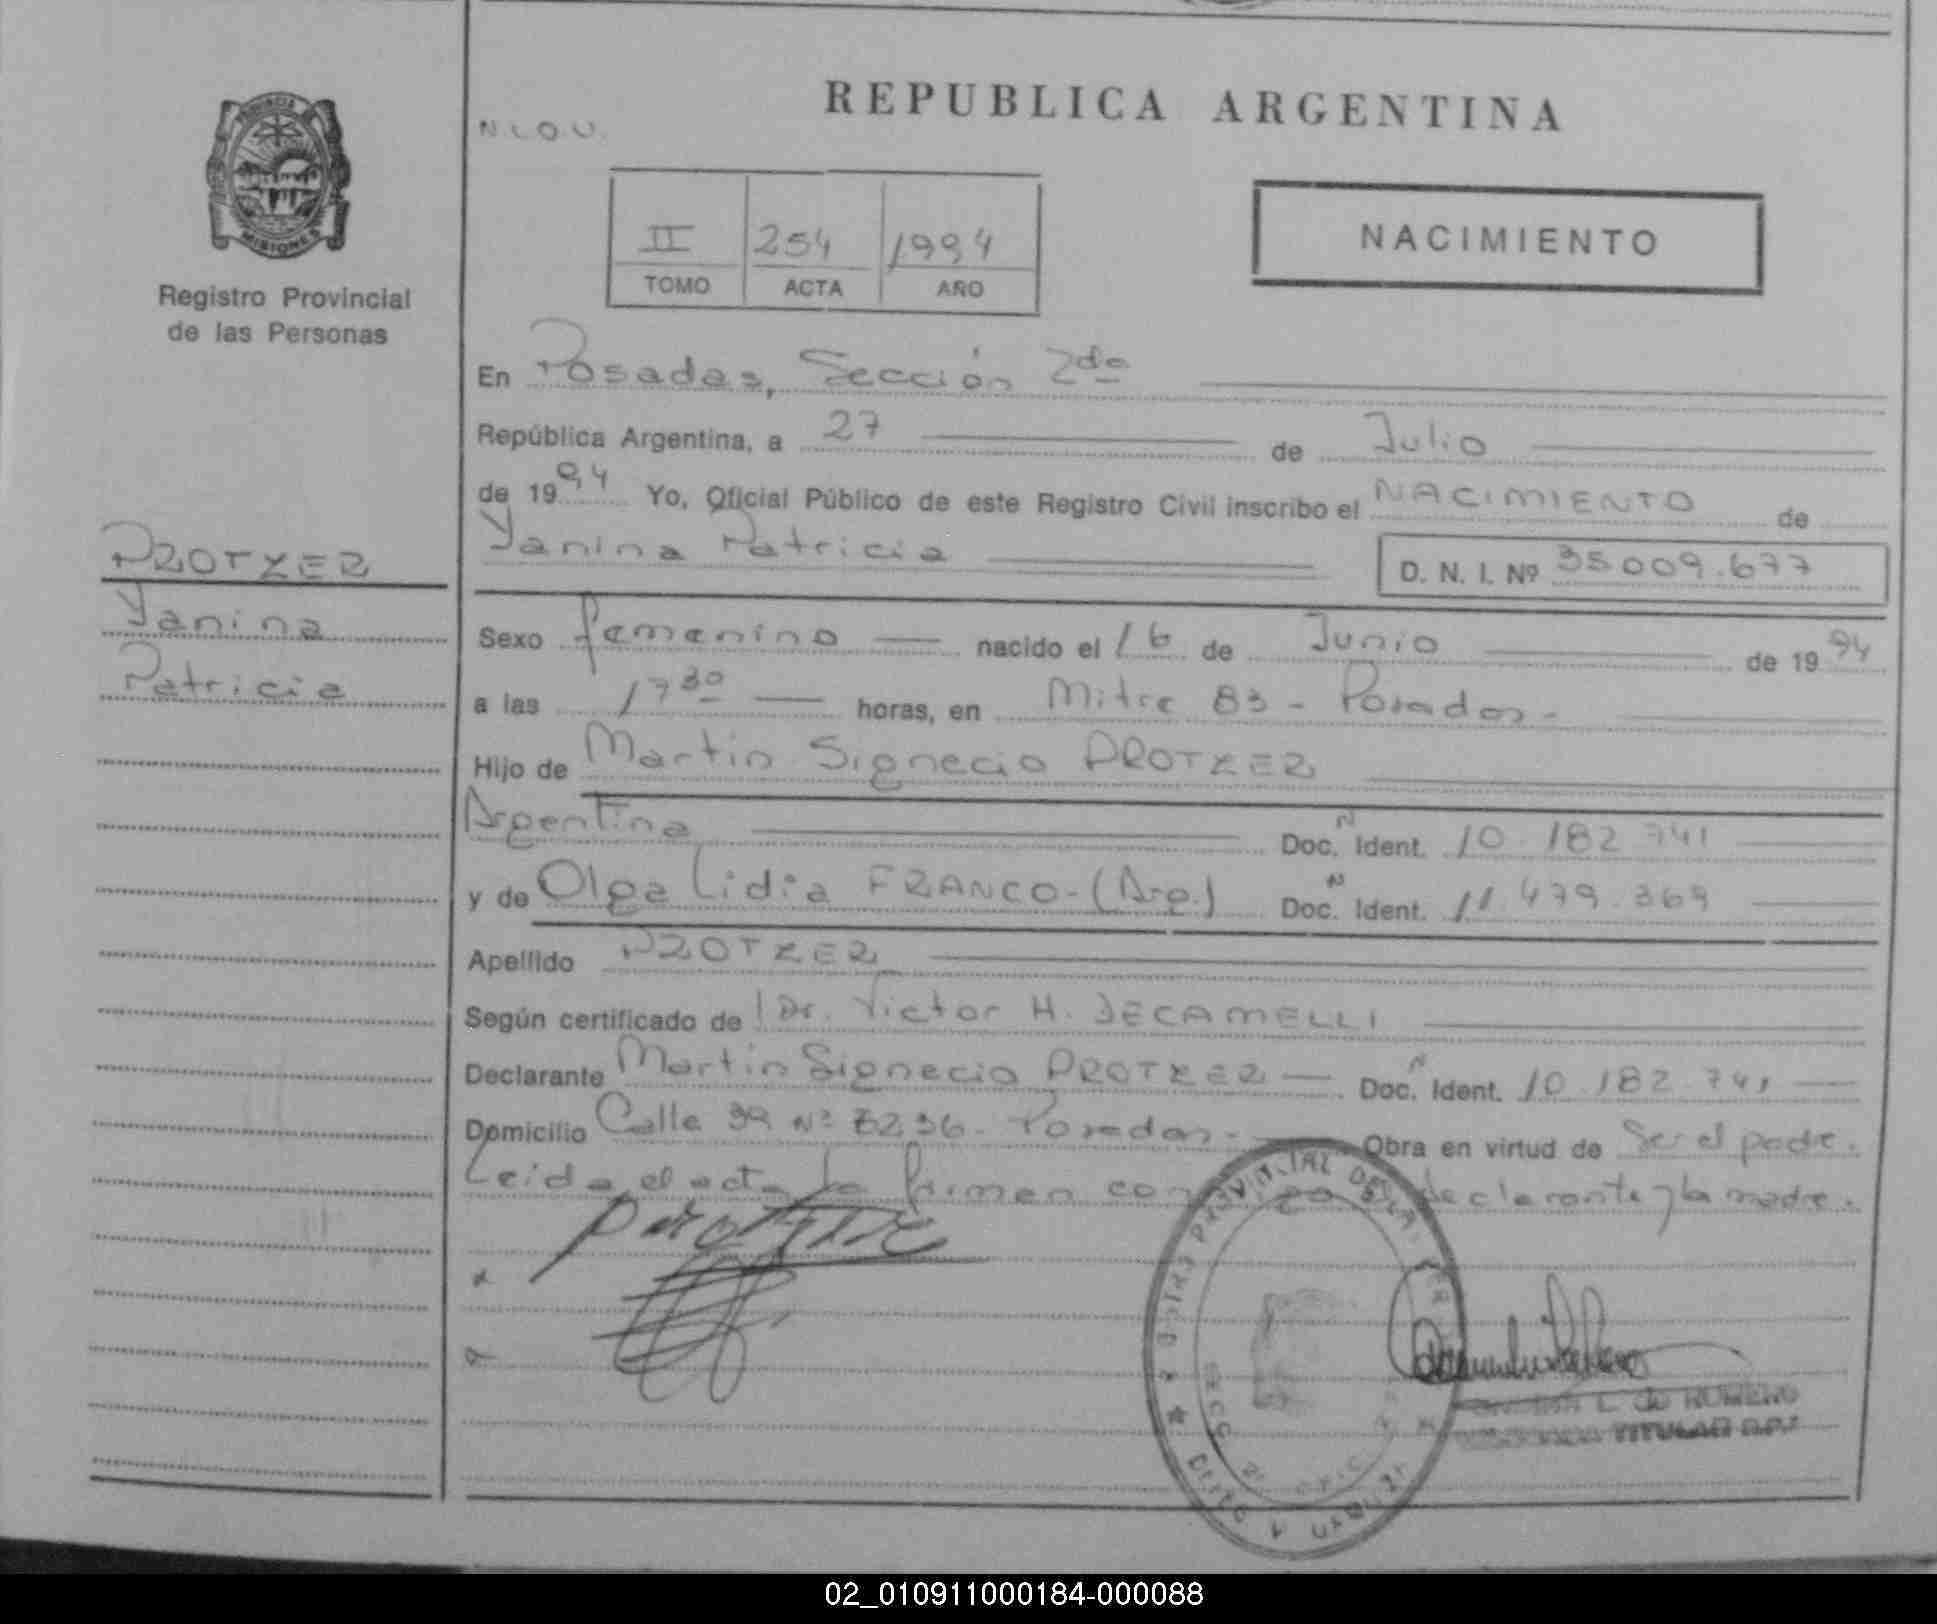 REPUBLICA ARGENTINA
MISIONES
Registro Provincial
de las Personas
II 254 1994
TOMO ACTA AÑO
NACIMIENTO
En Posadas, Sección 2da
República Argentina, a 27 de Julio
de 1994 Yo, Oficial Público de este Registro Civil inscribo el NACIMIENTO de
Yanina Patricia D. N. I. Nº 35 009.677
PROTZER
Yanina
Patricia
Sexo femenino nacido el 16 de Junio de 1994
a las 17 30 horas, en Mitre 83 - Posadas -
Hijo de Martin Signecio PROTZER
Argentina Doc. Ident. 10.182 741
y de Olga Lidia FRANCO - (Arg.) Doc. Ident. 11.479.369
Apellido PROTZER
Según certificado de Dr. Victor H. DECAMELLI
Declarante Martin Signecio PROTZER Doc. Ident. 10.182 741
Domicilio Calle 39 Nº Posadas - Obra en virtud de Ser el padre.
Leida el acta la firman conmigo el declarante y la madre.
L. de ROMERO
TITULAR
02_010911000184-000088